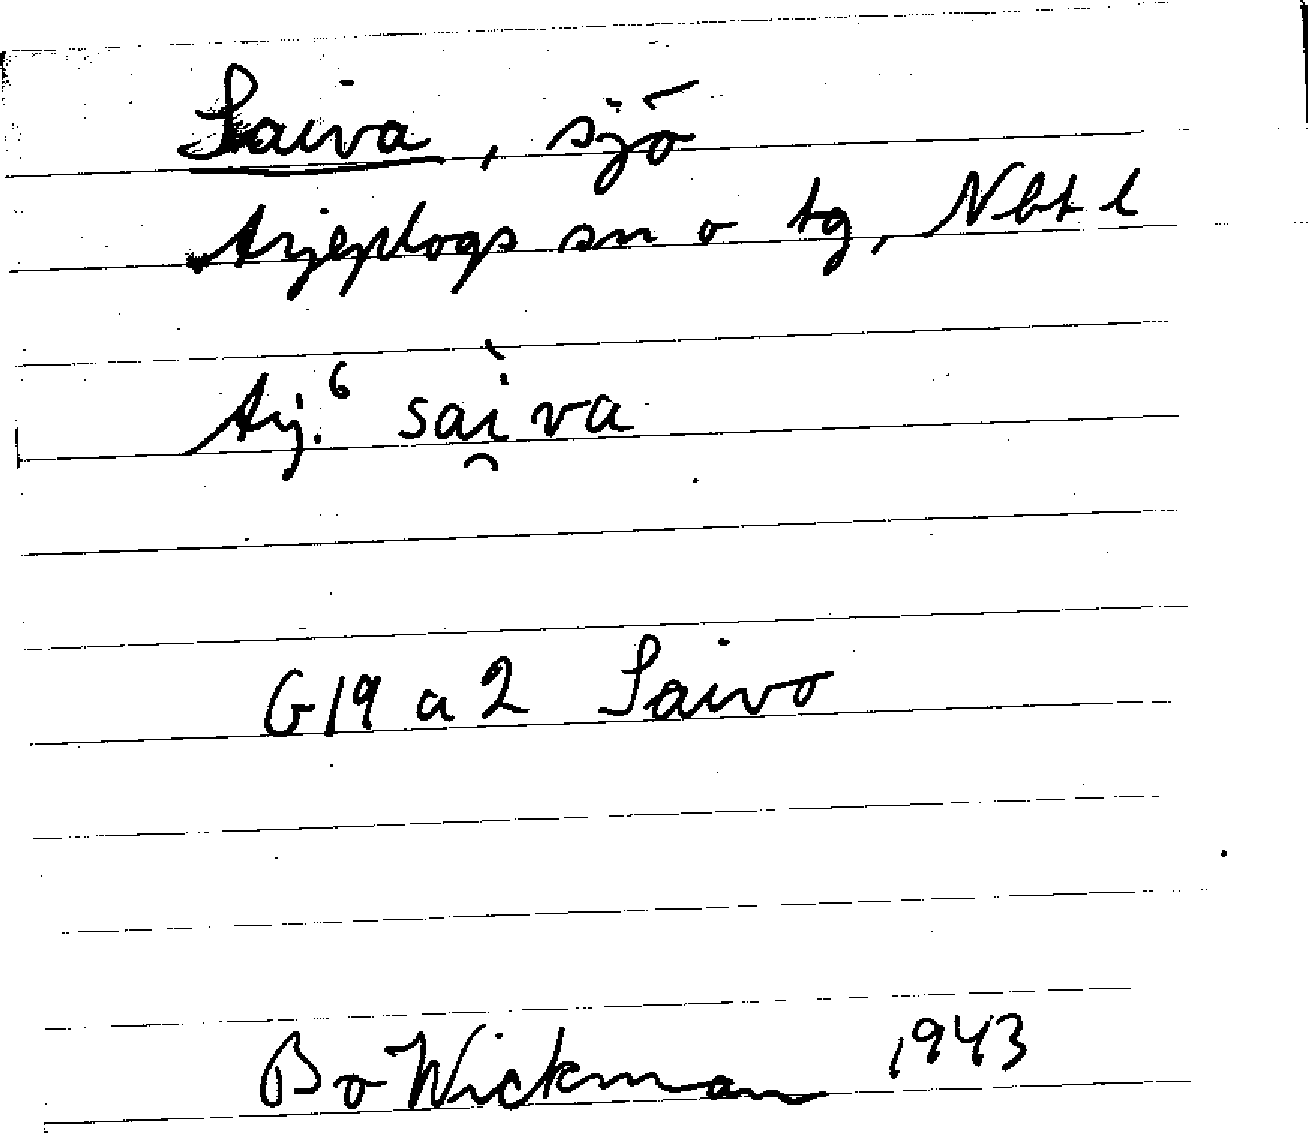 Saiva, sjö
Arjeplogs sn o tg, Nbt l
Arj.⁶ sài̯va
G19 a 2 Saivo
Bo Wickman 1943